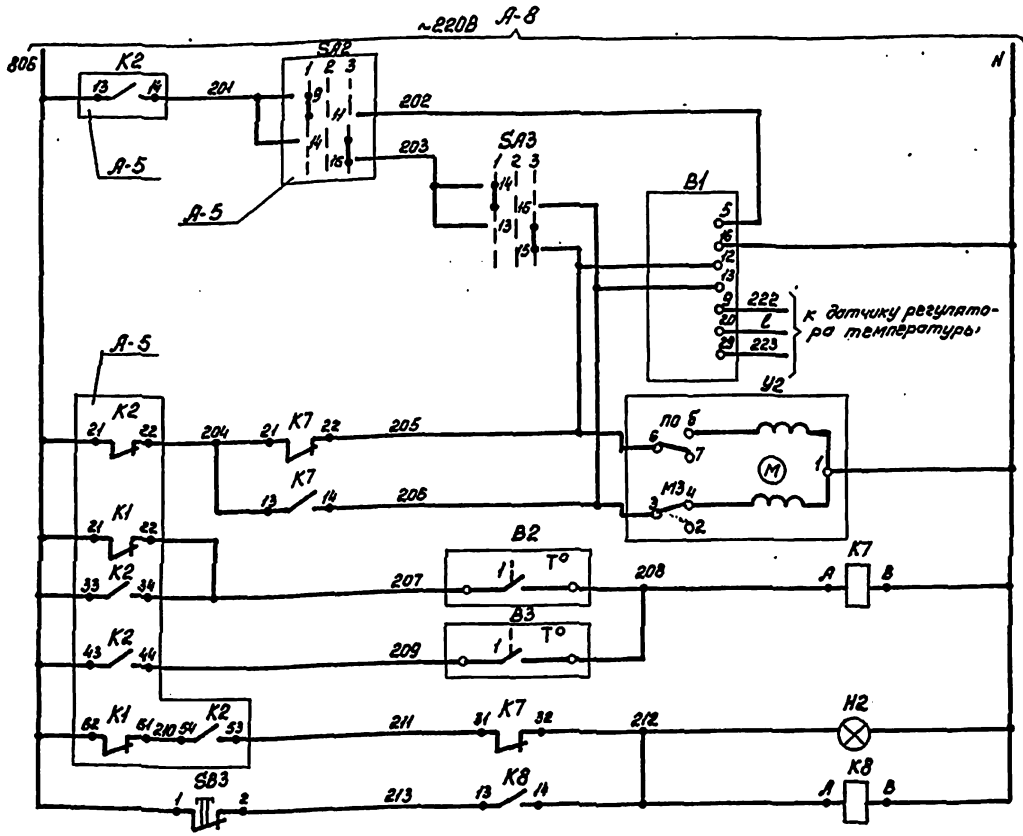 ~220В А-8
806
N
К2
13 14
201
А-5
SA2
1 2 3
9
11
14
16
202
203
А-5
SA3
1 2 3
14
16
13
15
В1
5
16
12
13
9
20
29
222
l
223
к датчику регулято-
ра температуры
А-5
К2
21 22
204
К7
21 22
205
К7
13 14
206
У2
ПО 5
6
7
М
1
МЗ 4
3
2
К1
21 22
К2
33 34
207
В2
1 Т°
208
К7
А В
К2
43 44
209
В3
1 Т°
К1
62 61
210
К2
54 53
211
К7
31 32
212
Н2
SB3
1 2
213
К8
13 14
К8
А В